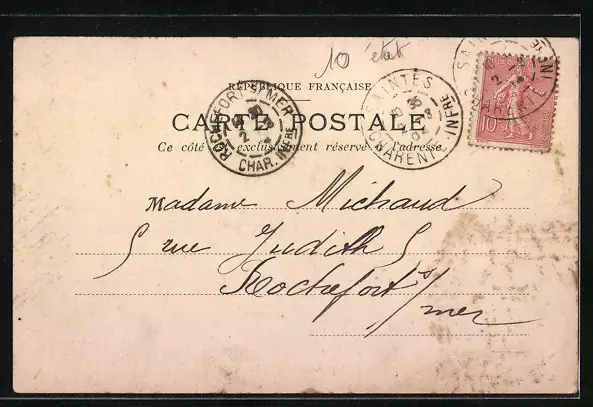 10 état
RÉPUBLIQUE FRANÇAISE
CARTE POSTALE
Ce côté est exclusivement réservé à l'adresse
ROCHEFORT S MER
CHAR. INFRE
SAINTES
CHARENTE INFRE
10
Madame Michaud
5 rue Judith 5
Rochefort s/
mer